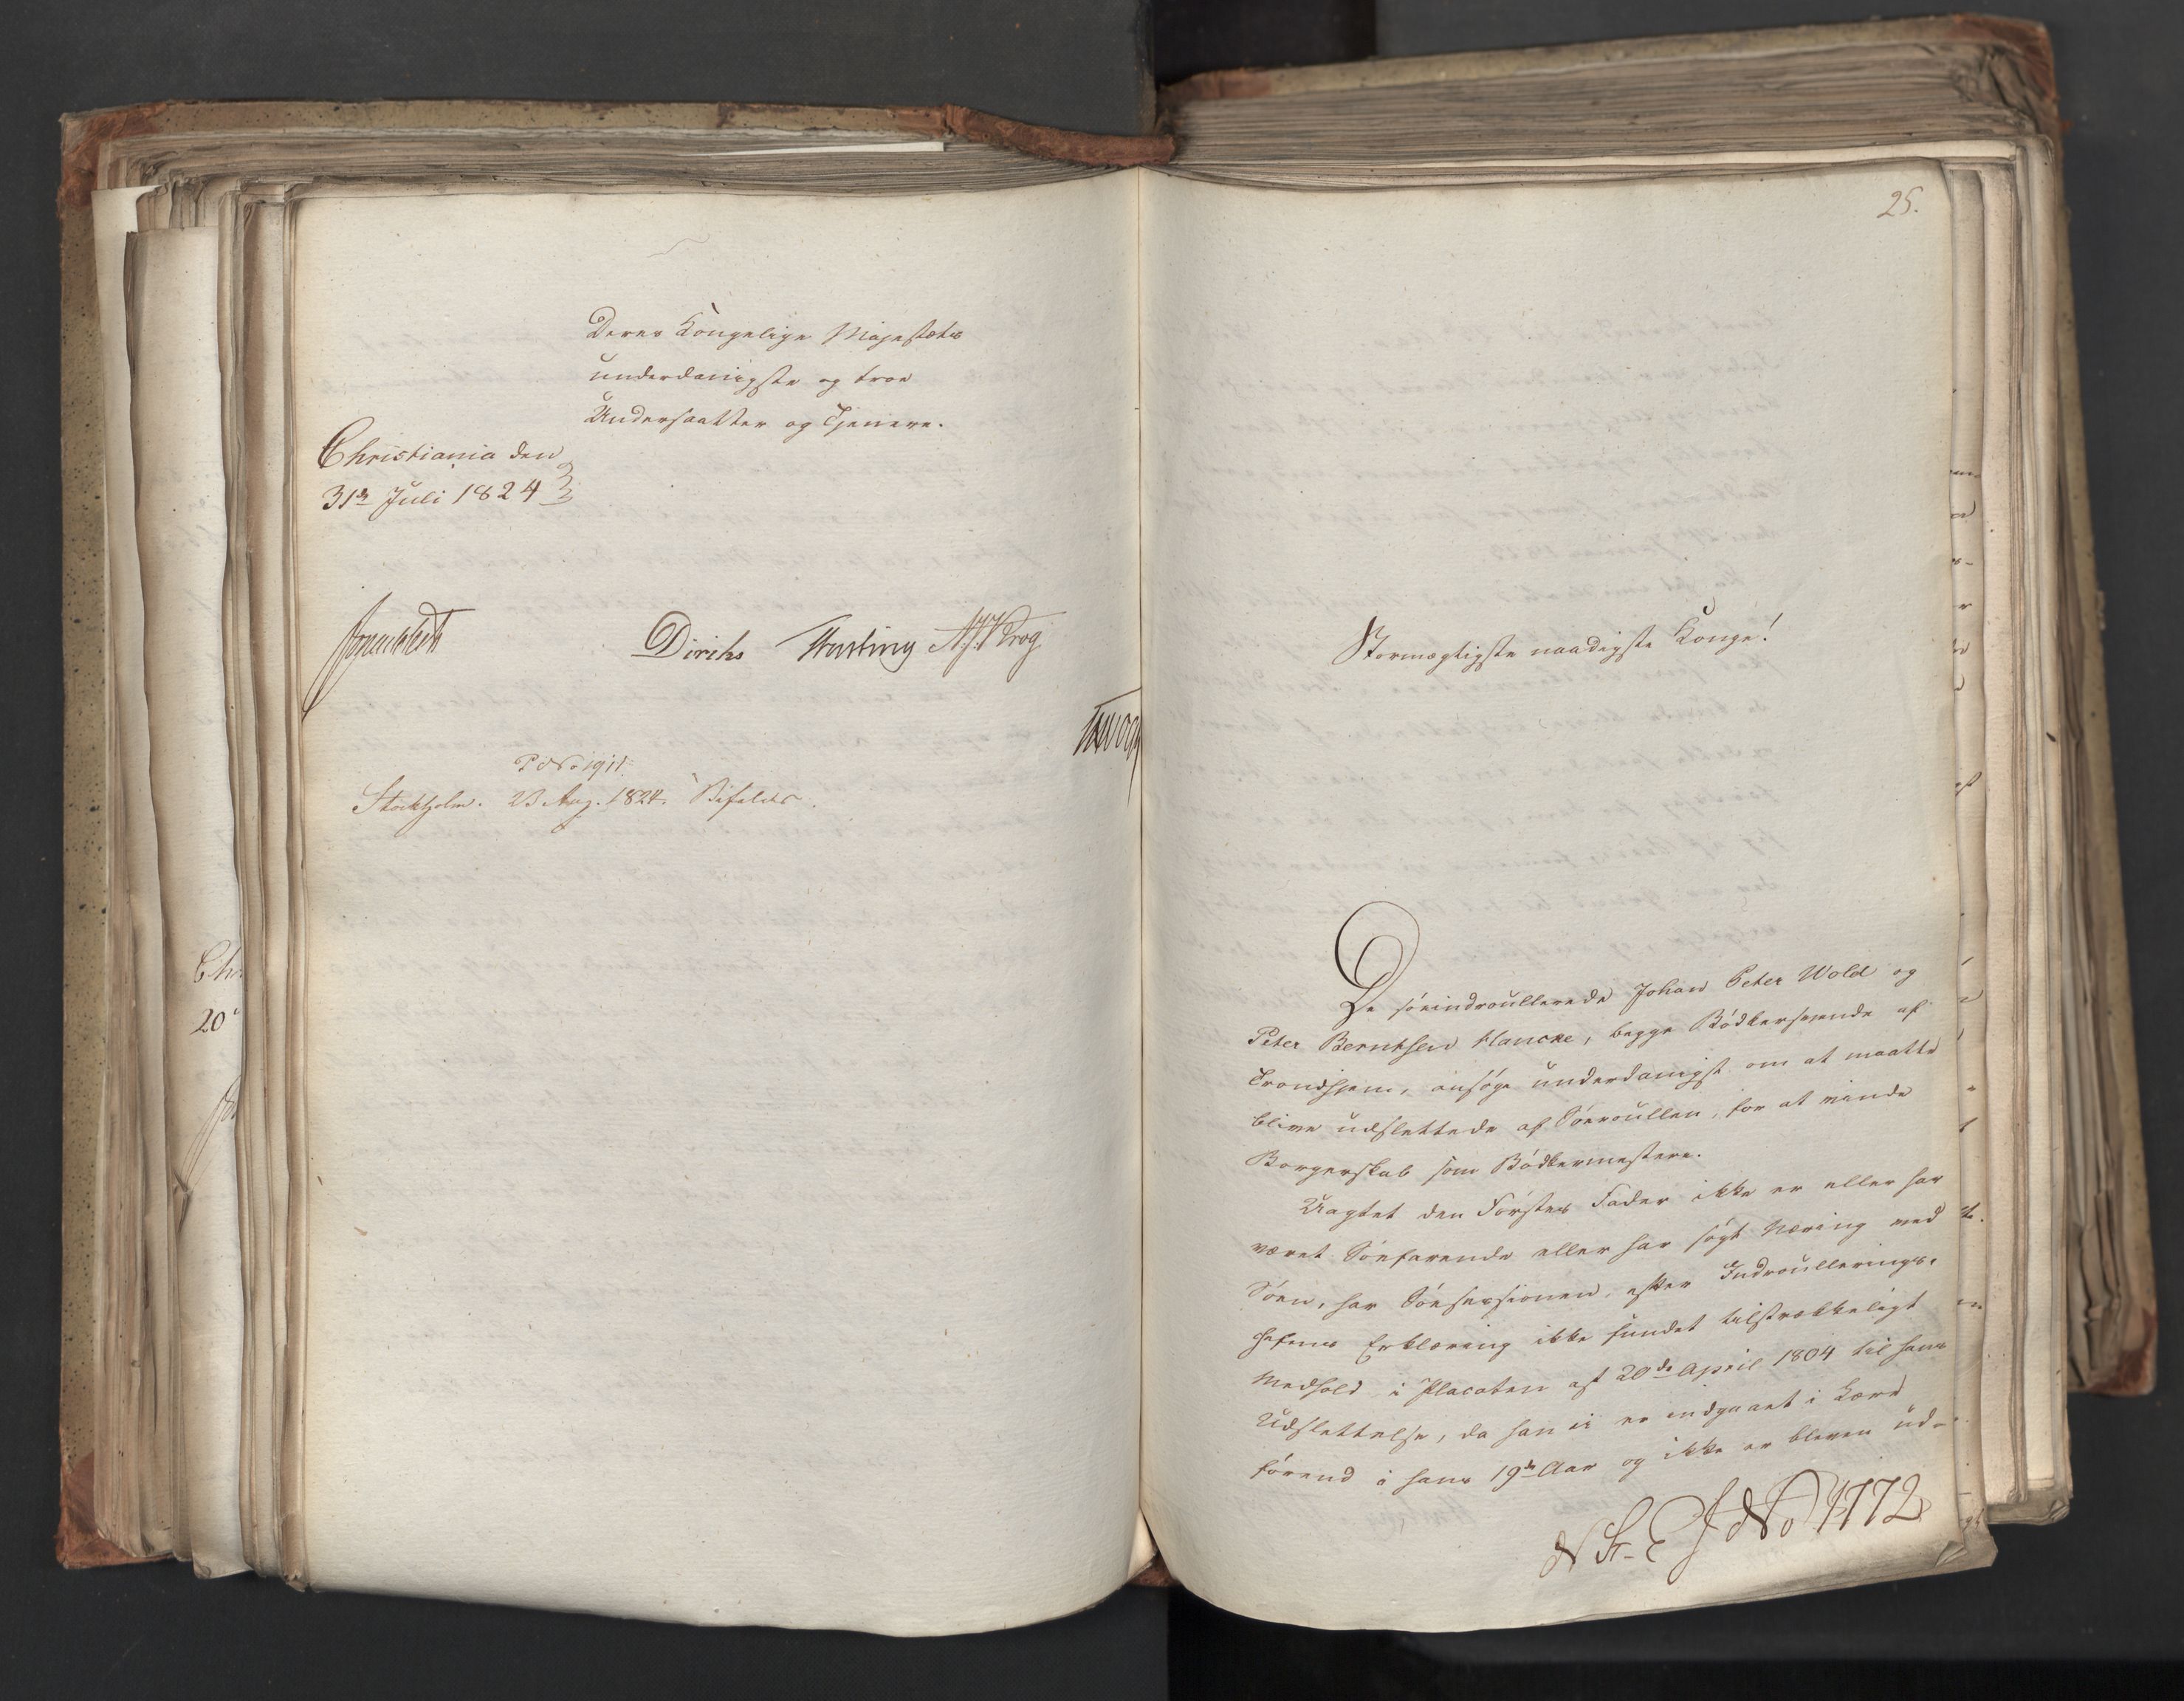 Deres Kongelige Majestæts
underdanigste og troe
Undersaatter og Tjenere.
Christiania den
31te Juli 1824
Sommerfeldt
Diriks Hasting A. J. Krog
P d No 1911.
Stockholm. 23 Aug. 1824. Bifaldes.
Chr
20
25.
Stormægtigste naadigste Konge!
De söeindroullerede Johan Peter Wold og
Peter Berntsen Hancke, begge Bödkersvende af
Trondhjem, ansöge underdanigst om at maatte
blive udslettede af Söeroullen, for at vinde
Borgerskab som Bödkermestere.
Uagtet den Förstes Fader ikke er eller har
været Söefarende eller har sögt Næring med
Söen, har Söesessionen, efter Indroullerings-
chefens Erklæring ikke fundet tilstrækkeligt
Medhold i Placaten af 20de April 1804 til hans
Udslettelse, da han ei er indgaaet i Lære
förend i hans 19de Aar og ikke er bleven ud-
N St-E J No 1772